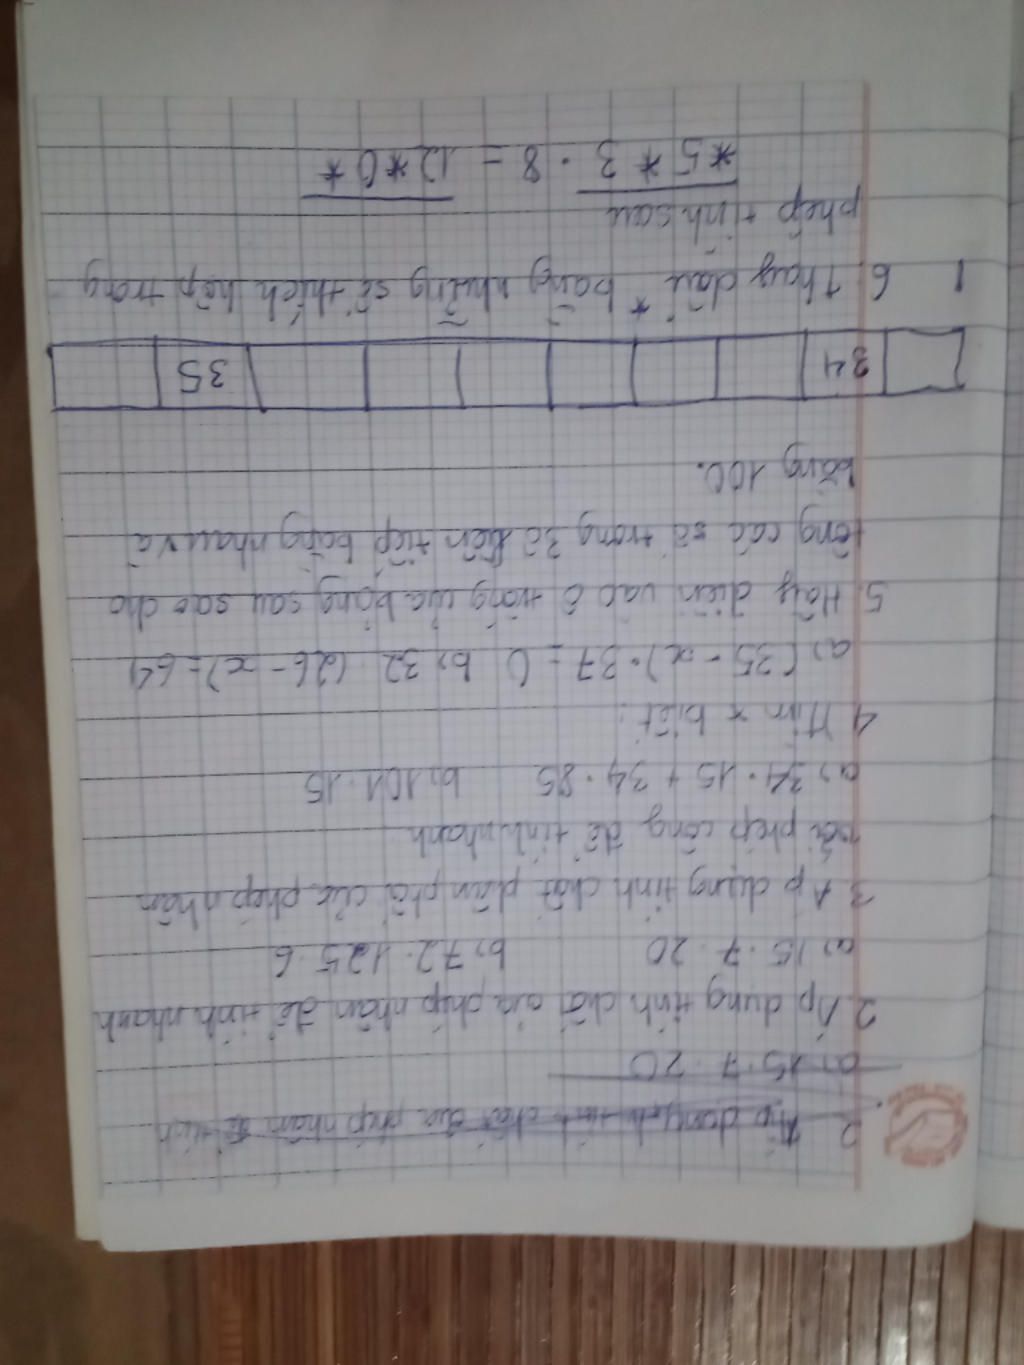 2. Áp dụng tính chất của phép nhân để tính
a) 15 . 7 . 20
2. Áp dụng tính chất của phép nhân để tính nhanh
a) 15 . 7 . 20 b) 72 . 125 . 6
3. Áp dụng tính chất phân phối của phép nhân
với phép cộng để tính nhanh
a) 34 . 15 + 34 . 85 b) 101 . 15
4 Tìm x biết:
a) (35 - x) . 37 = 0 b) 32 . (26 - x) = 64
5. Hãy điền vào ô trống của bảng sau sao cho
tổng các số trong 3 ô liên tiếp bằng nhau và
bằng 100.
34 35
6. Thay dấu * bằng những số thích hợp trong
phép tính sau
*5*3 . 8 = 12*0*